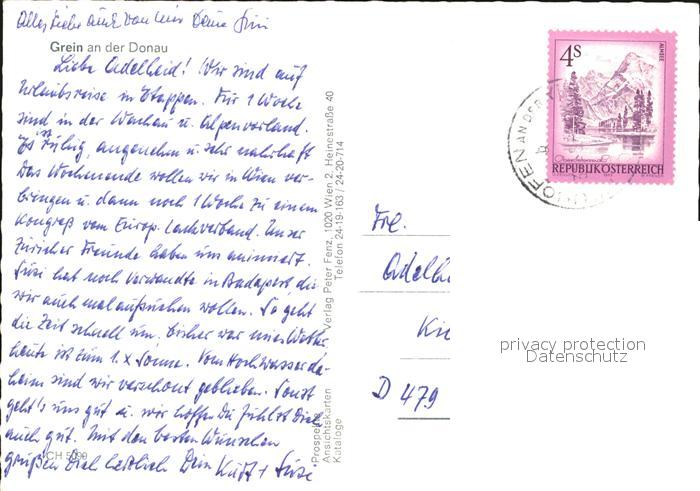 Alles Liebe auch von mir Deine Susi
Grein an der Donau
Liebe Adelheid! Wir sind auf
Urlaubsreise in Etappen. Für 1 Woche
sind in der Wachau u. Alpenvorland.
Es ist ruhig, angenehm u. sehr nahrhaft
Das Wochenende wollen wir in Wien ver-
bringen u. dann noch 1 Woche zu einem
Kongreß vom Europ. verband. Unser
Züricher Freunde haben uns animiert.
Susi hat noch Verwandte in Budapest, die
wir auch mal aufsuchen wollen. So geht
die Zeit schnell um, bisher war mieses Wetter
heute ist zum 1. x Sonne. Vom Hochwasser da-
heim sind wir verschont geblieben. Sonst
geht's uns gut u. wir hoffen Du fühlst Dich
auch gut. Mit den besten Wünschen
grüßen Dich herzlich Dein Kurt + Susi
CH 5099
Prospekte
Ansichtskarten
Kataloge
Verlag Peter Fenz, 1020 Wien 2, Heinestraße 40
Telefon 24-19-163 / 24-20-714
4S
ALMSEE
REPUBLIK ÖSTERREICH
HOFEN AN DER
Frl.
Adelh
D 479
privacy protection
Datenschutz